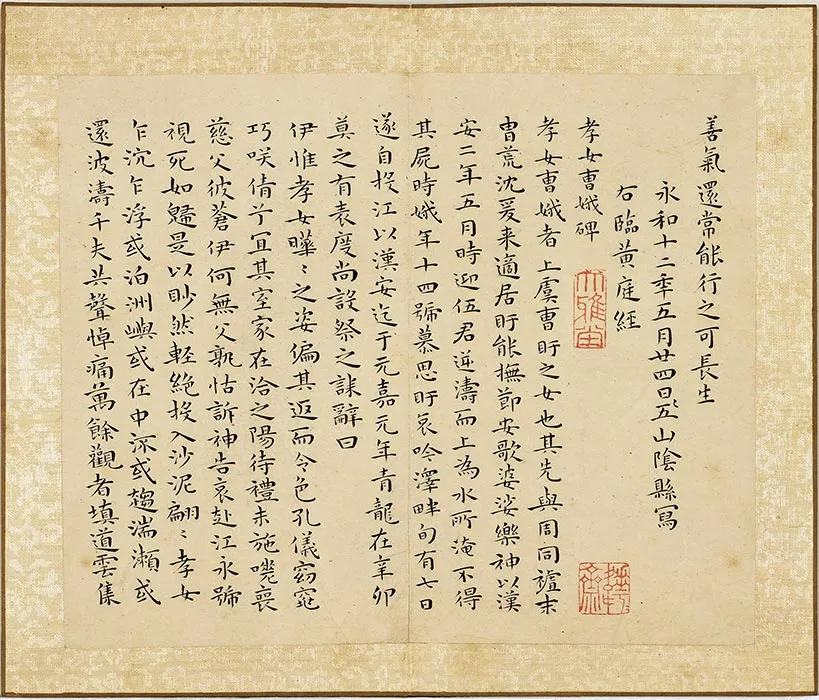 善氣還常能行之可長生
永和十二年五月廿四日五山陰縣寫
右臨黃庭經
孝女曹娥碑
孝女曹娥者上虞曹盱之女也其先與周同末
曹荒沈爰来適居盱能撫節安歌婆娑樂神以漢
安二年五月時迎伍君逆濤而上為水所淹不得
其屍時娥年十四號慕思盱哀吟澤畔旬有七日
遂自投江以漢安迄于元嘉元年青龍在辛卯
莫之有表度尚設祭之誄辭曰
伊惟孝女曄〻之姿偏其返而令色孔儀窈窕
巧咲倩兮宜其室家在洽之陽待禮未施嗟喪
慈父彼蒼伊何無父孰怙訴神告哀赴江永號
視死如歸是以眇然輕絕投入沙泥翩〻孝女
乍沉乍浮或泊洲嶼或在中流或趨湍瀨或
還波濤千夫共聲悼痛萬餘觀者填道雲集